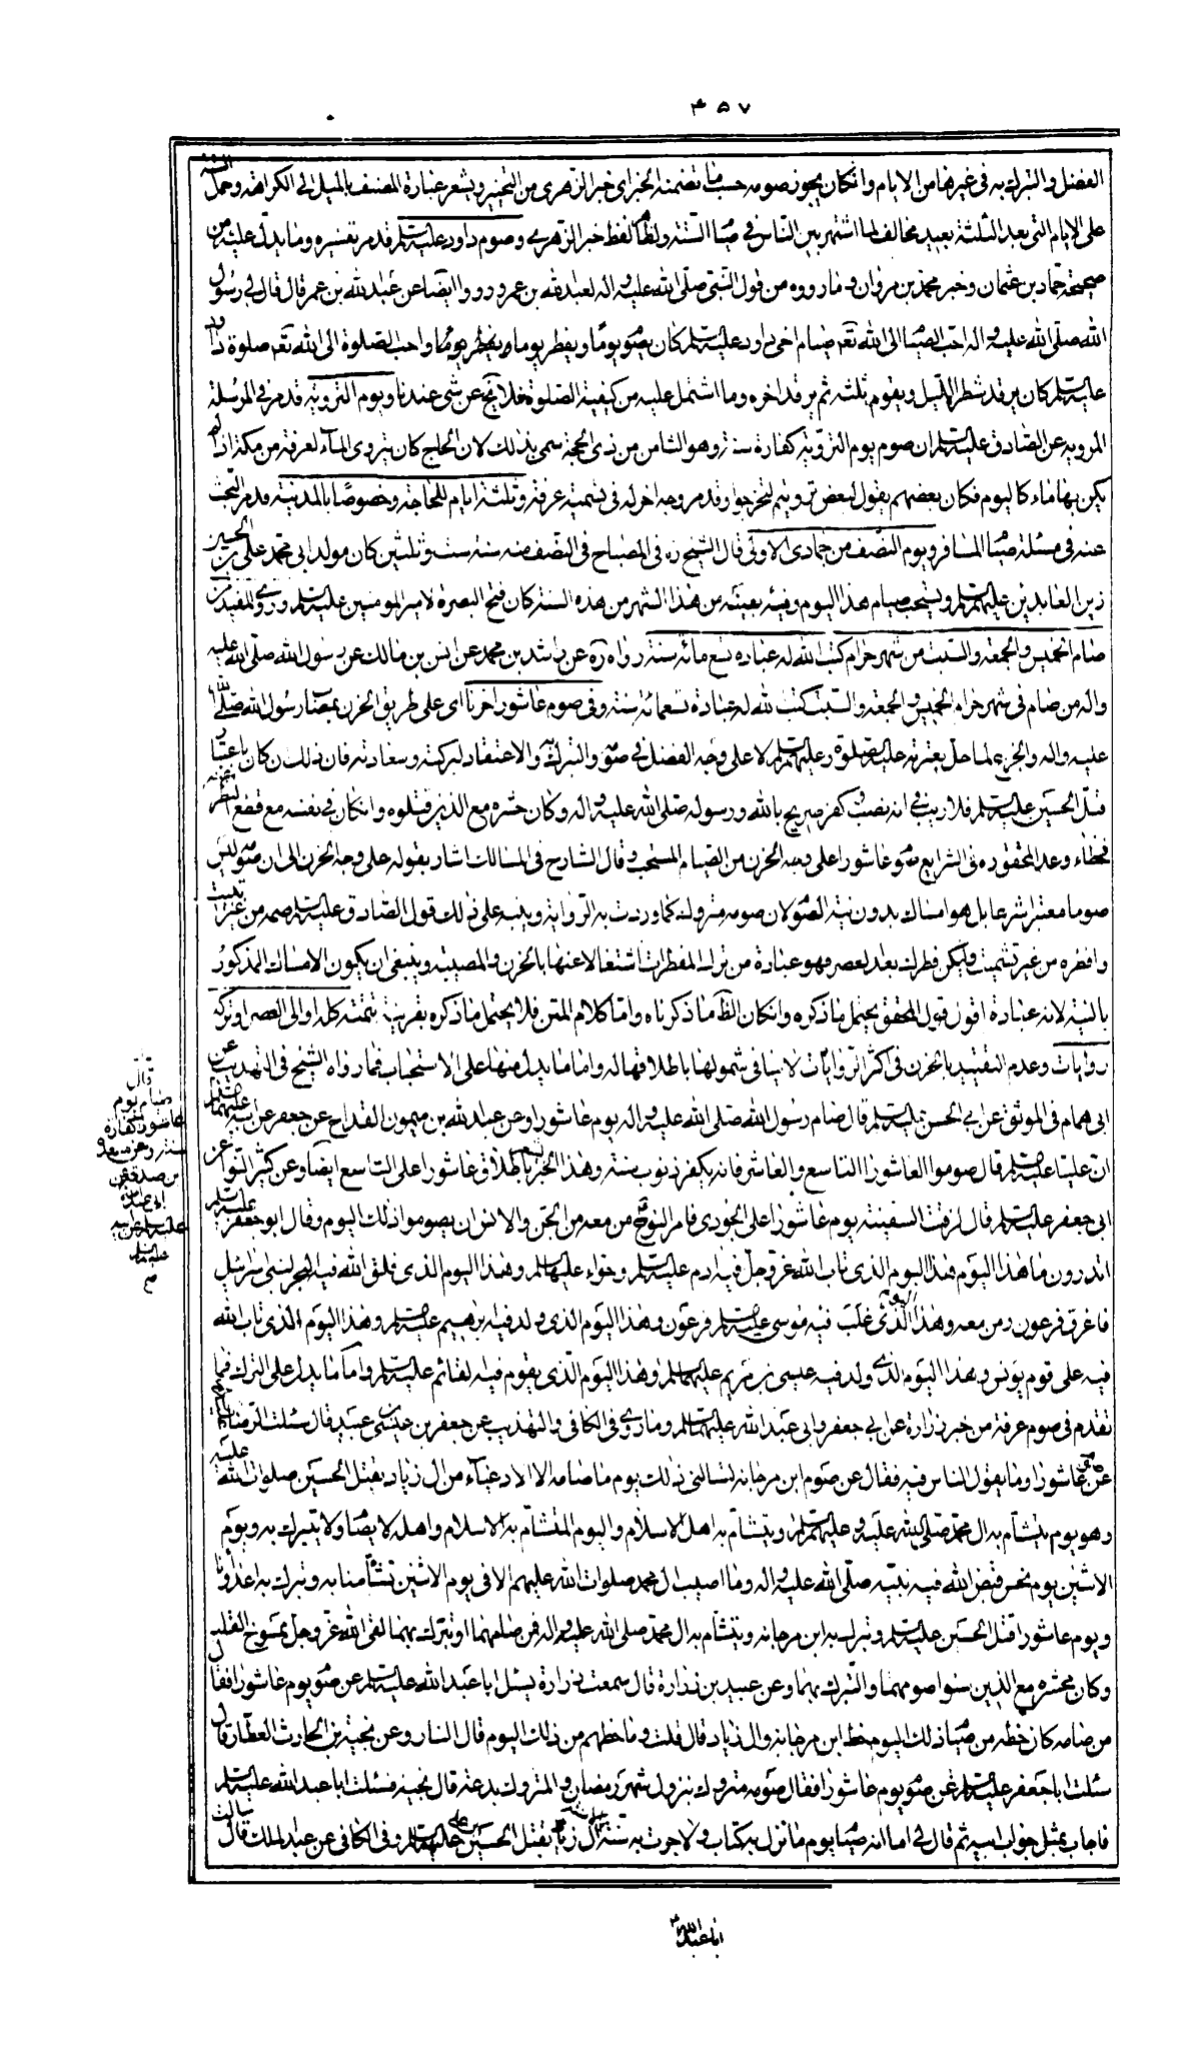 ٤٥٧
الفضل والتبرك به في غيرها من الايام وانكان يجوز صومه حسب ما تضمنه الخبر اى خبر الزهرى من التخيير ويشعر عبارة المصنف بالميل الى الكراهة وحمل الستة
على الايام التى بعد الثلثة بعيد مخالف لما اشتهر بين الناس فى صيام الستة ولظ لفظ خبر الزهرى وصوم داود عليه السلام قد مر تفسيره وما يدل عليه من
صحيحة حماد بن عثمان وخبر محمد بن مروان وما رووه من قول النبى صلى الله عليه واله لعبد الله بن عمرو ورووا ايضا عن عبد الله بن عمر قال قال لى رسول
الله صلى الله عليه واله احب الصيام الى الله تعه صيام اخى داود عليه السلام كان يصوم يوما ويفطر يوما واحب الصلوة الى الله تعه صلوة داود
عليه السلام كان يرقد شطر الليل ويقوم ثلثه ثم يرقد اخره وما اشتمل عليه من كيفية الصلوة فلا يخ عن شى عندنا ويوم التروية قد مر فى المرسلة
المروية عن الصادق عليه السلام ان صوم يوم التروية كفارة سنة وهو الثامن من ذى الحجة سمى بذلك لان الحاج كان يتروى الماء لعرفة من مكة اذ لم
يكن بها ماء كاليوم فكان بعضهم يقول لبعض ترويتم لتخرجوا وقد مر وجه اخر له فى تسمية عرفة وثلثة ايام للحاجة وخصوصا بالمدينة قد مر البحث
عنه فى مسئلة صيام المسافر ويوم النصف من جمادى الاولى قال الشيخ ره فى المصباح فى النصف منه سنة ست وثلثين كان مولد ابى محمد على بن الحسين
زين العابدين عليهما السلام ويستحب صيام هذا اليوم وفيه بعينه من هذا الشهر من هذه السنة كان فتح البصرة لامير المومنين عليه السلام وروى المفيد من
صام الخميس والجمعة والسبت من شهر حرام كتب الله له عبادة تسع مائة سنة رواه ره عن راشد بن محمد عن انس بن مالك عن رسول الله صلى الله عليه
واله من صام فى شهر حرام الخميس والجمعة والسبت كتب الله له عبادة تسعمائة سنة وفى صوم عاشورا حزنا اى على طريق الحزن بمصاب رسول الله صلى الله
عليه واله والجزع لما حل بعترته عليه الصلوة وعليهم السلام لا على وجه الفضل فى صومه والتبرك به والاعتقاد لبركته وسعادته فان ذلك ان كان باعتبار
قتل الحسين عليه السلام فلا ريب فى انه نصب وكفر صريح بالله ورسوله صلى الله عليه واله وكان حشره مع الذين قتلوه وانكان فى نفسه مع قطع النظر عنه
فخطاء وعد المحقق ره فى الشرايع صوم عاشورا على وجه الحزن من الصيام المستحب وقال الشارح فى المسالك اشار بقوله على وجه الحزن الى ان صومه ليس
صوما معتبرا شرعا بل هو امساك بدون نية الصوم لان صومه متروك كما وردت به الرواية وينبه على ذلك قول الصادق عليه السلام صمه من غير تبييت
وافطره من غير تشميت وليكن فطرك بعد العصر فهو عبارة من ترك المفطرات اشتغالا عنها بالحزن والمصيبة وينبغى ان يكون الامساك المذكور
بالنية لانه عبادة اقول قول المحقق يحتمل ما ذكره وانكان الظ ما ذكرناه واما كلام المتن فلا يحتمل ما ذكره بقرينة تتمته كله او الى العصر او تركه
روايات وعدم التقييد بالحزن فى اكثر الروايات لا ينافى شمولها باطلاقها له واما ما يدل منها على الاستحباب فما رواه الشيخ فى التهذيب عن
ابى همام فى الموثق عن ابى الحسن عليه السلام قال صام رسول الله صلى الله عليه واله يوم عاشورا وعن عبد الله بن ميمون القداح عن جعفر عن ابيه عليهما السلام
ان عليا عليه السلام قال صوموا العاشورا التاسع والعاشر فانه يكفر ذنوب سنة وهذا الخبر باطلاق عاشورا على التاسع ايضا وعن كثير النوا عن
ابى جعفر عليه السلام قال لزقت السفينة يوم عاشورا على الجودى فامر نوح من معه من الجن والانس ان يصوموا ذلك اليوم وقال ابو جعفر عليه السلام
اتدرون ما هذا اليوم هذا اليوم الذى تاب الله عز وجل فيه على ادم عليه السلام وحواء عليها السلام وهذا اليوم الذى فلق الله فيه البحر لبنى اسرائيل
فاغرق فرعون ومن معه وهذا اليوم الذى غلب فيه موسى عليه السلام فرعون وهذا اليوم الذى ولد فيه ابرهيم عليه السلام وهذا اليوم الذى تاب الله
فيه على قوم يونس وهذا اليوم الذى ولد فيه عيسى بن مريم عليهما السلام وهذا اليوم الذى يقوم فيه القائم عليه السلام واما ما يدل على الترك فما
تقدم فى صوم عرفة من خبر زرارة عن ابى جعفر وابى عبد الله عليهما السلام وما روى فى الكافى والتهذيب عن جعفر بن عيسى بن عبيد قال سئلت الرضا عليه السلام
عن صوم عاشورا وما يقول الناس فيه فقال عن صوم ابن مرجانة تسالنى ذلك يوم ما صامه الا الادعياء من ال زياد بقتل الحسين صلوات الله عليه
وهو يوم يتشأم به ال محمد صلى الله عليه وعليهم السلام ويتشأم به اهل الاسلام واليوم المتشأم به الاسلام واهله لا يصام ولا يتبرك به ويوم
الاثنين يوم نحس قبض الله فيه نبيه صلى الله عليه واله وما اصيب ال محمد صلوات الله عليهم الا فى يوم الاثنين تشأمنا به وتبرك به اعداؤنا
ويوم عاشورا قتل الحسين عليه السلام وتبرك به ابن مرجانة ويتشأم به ال محمد صلى الله عليه واله فمن صامهما او تبرك بهما لقى الله عز وجل ممسوخ القلب
وكان محشره مع الذين سنوا صومهما والتبرك بهما وعن عبيد بن زرارة قال سمعت زرارة يسئل ابا عبد الله عليه السلام عن صوم يوم عاشورا فقال
من صامه كان حظه من صيام ذلك اليوم حظ ابن مرجانة وال زياد قال قلت وما حظهم من ذلك اليوم قال النار وعن نجية بن الحارث العطار قال
سئلت ابا جعفر عليه السلام عن صوم يوم عاشورا فقال صومه متروك بنزول شهر رمضان والمتروك بدعة قال نجية فسئلت ابا عبد الله عليه السلام
فاجاب بمثل جواب ابيه ثم قال لى اما انه صيام يوم ما نزل به كتاب ولا جرت به سنة الا سنة ال زياد بقتل الحسين بن على عليهما السلام وفى الكافى عن عبد الملك قال سالت
قال
صيام يوم
عاشورا كفارة
سنة وعن مسعدة
بن صدقة عن
ابى عبد الله
عليه السلام عن ابيه
عليهما السلام
م
ابا عبد الله